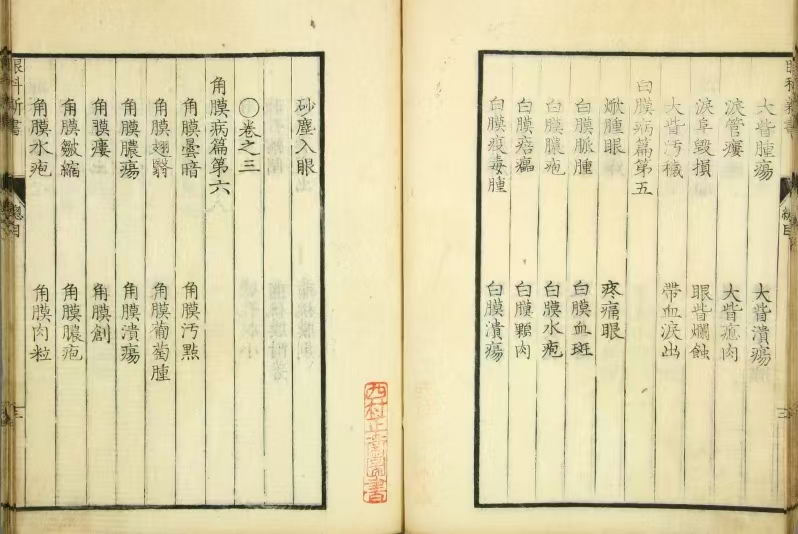 大眥腫瘍 大眥潰瘍
淚管瘻 大眥瘜肉
淚阜毀損 眼眥爛蝕
大眥汚穢 帶血淚出
白膜病篇第五
焮腫眼 疼痛眼
白膜脈腫 白膜血斑
白膜膿疱 白膜水疱
白膜痞癟 白膜顆肉
白膜痕毒腫 白膜潰瘍
砂塵入眼
卷之三
角膜病篇第六
角膜曇暗 角膜汚點
角膜翅翳 角膜葡萄腫
角膜膿瘍 角膜潰瘍
角膜瘻 角膜創
角膜皺縮 角膜膿疱
角膜水疱 角膜肉粒
眼科新書
總目
三